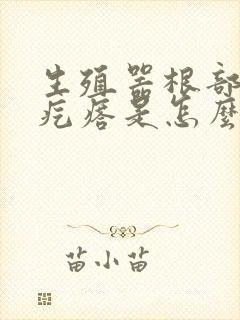 生殖器根部
疙瘩是怎麼
苗小苗